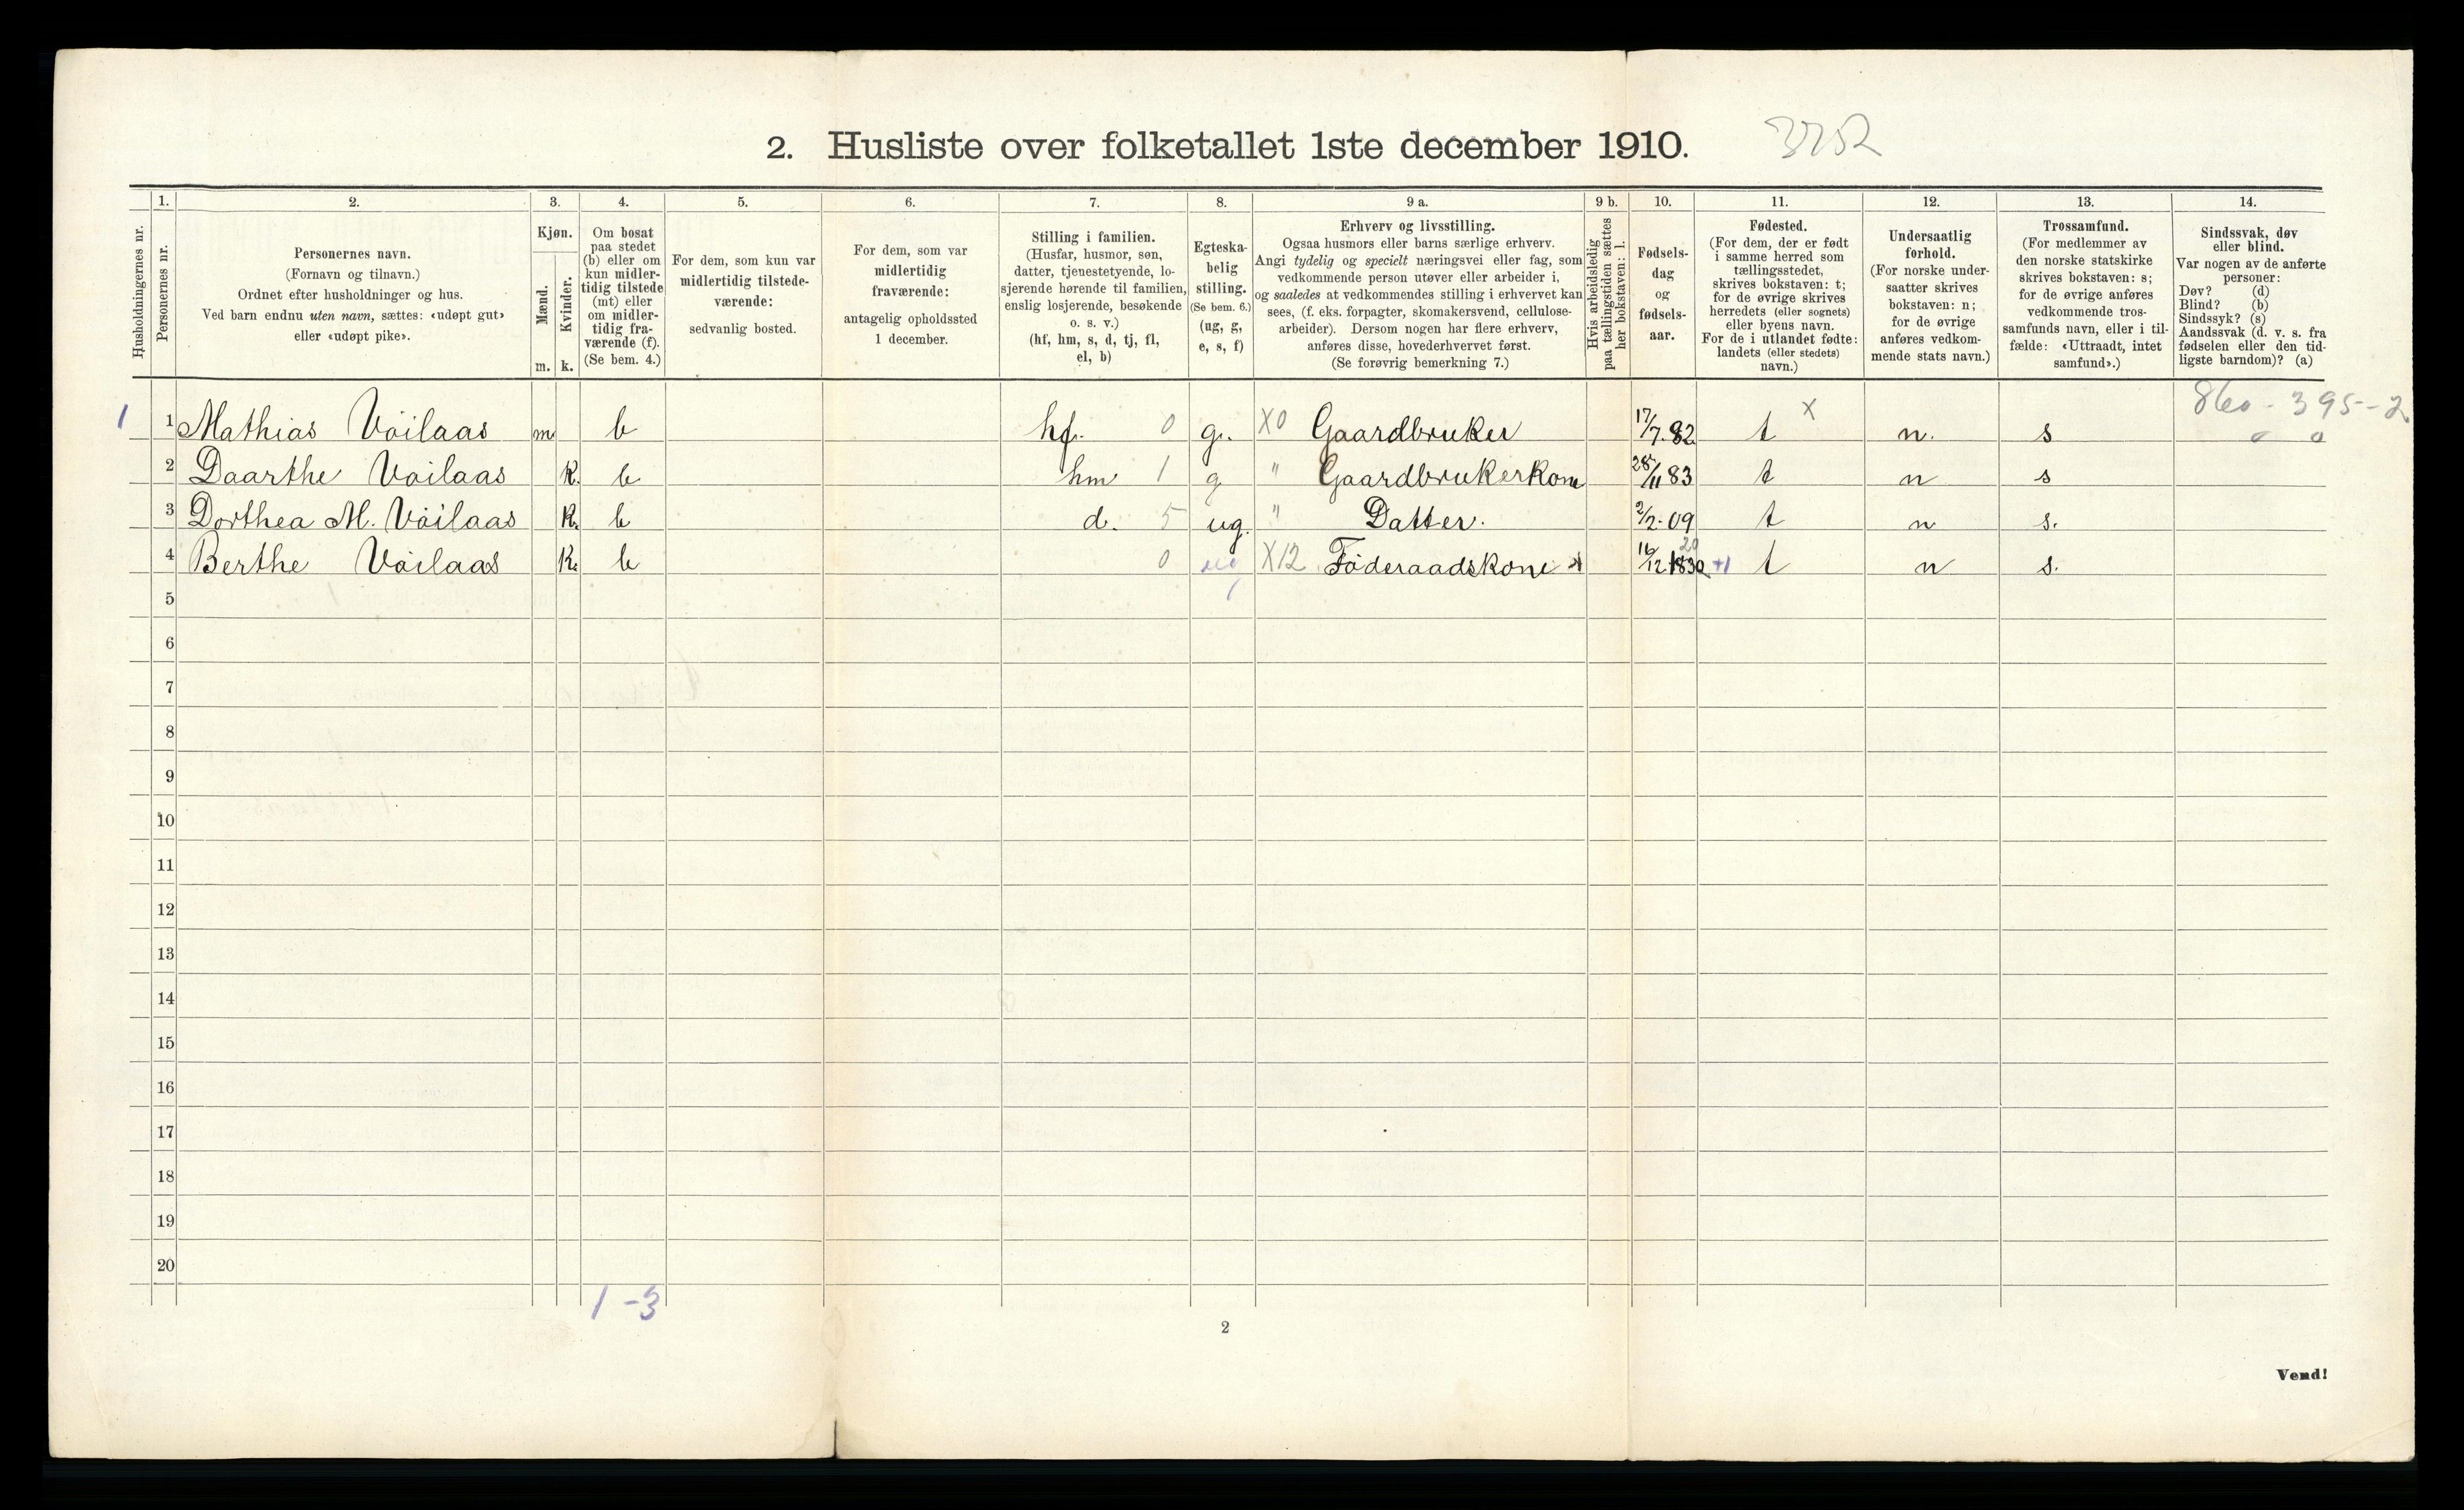 2. Husliste over folketallet 1ste december 1910. 3252
Husholdningernes nr.
1.
Personernes nr.
2.
Personernes navn.
(Fornavn og tilnavn.)
Ordnet efter husholdninger og hus.
Ved barn endnu uten navn, sættes: «udøpt gut»
eller «udøpt pike».
3.
Kjøn.
Mænd.
m.
Kvinder.
k.
4.
Om bosat
paa stedet
(b) eller om
kun midler-
tidig tilstede
(mt) eller
om midler-
tidig fra-
værende (f).
(Se bem. 4.)
5.
For dem, som kun var
midlertidig tilstede-
værende:
sedvanlig bosted.
6.
For dem, som var
midlertidig
fraværende:
antagelig opholdssted
1 december.
7.
Stilling i familien.
(Husfar, husmor, søn,
datter, tjenestetyende, lo-
sjerende hørende til familien,
enslig losjerende, besøkende
o. s. v.)
(hf, hm, s, d, tj, fl,
el, b)
8.
Egteska-
belig
stilling.
(Se bem. 6.)
(ug, g,
e, s, f)
9 a.
Erhverv og livsstilling.
Ogsaa husmors eller barns særlige erhverv.
Angi tydelig og specielt næringsvei eller fag, som
vedkommende person utøver eller arbeider i,
og saaledes at vedkommendes stilling i erhvervet kan
sees, (f. eks. forpagter, skomakersvend, cellulose-
arbeider). Dersom nogen har flere erhverv,
anføres disse, hovederhvervet først.
(Se forøvrig bemerkning 7.)
9 b.
Hvis arbeidsledig
paa tællingstiden sættes
her bokstaven: l.
10.
Fødsels-
dag
og
fødsels-
aar.
11.
Fødested.
(For dem, der er født
i samme herred som
tællingsstedet,
skrives bokstaven: t;
for de øvrige skrives
herredets (eller sognets)
eller byens navn.
For de i utlandet fødte:
landets (eller stedets)
navn.)
12.
Undersaatlig
forhold.
(For norske under-
saatter skrives
bokstaven: n;
for de øvrige
anføres vedkom-
mende stats navn.)
13.
Trossamfund.
(For medlemmer av
den norske statskirke
skrives bokstaven: s;
for de øvrige anføres
vedkommende tros-
samfunds navn, eller i til-
fælde: «Uttraadt, intet
samfund».)
14.
Sindssvak, døv
eller blind.
Var nogen av de anførte
personer:
Døv? (d)
Blind? (b)
Sindssyk? (s)
Aandssvak (d. v. s. fra
fødselen eller den tid-
ligste barndom)? (a)
860 - 395 - 2
1 1 Mathias Vöilaas m b hf. 0 g. X0 Gaardbruker 17/7.82 t X n. s 0 0
2 Daarthe Vöilaas K. b hm 1 g " Gaardbrukerkone 28/11 83 t n s
3 Dorthea M. Vöilaas K. b d. 5 ug. " Datter. 2/2.09 t n s.
4 Berthe Vöilaas K. b 0 X12 Föderaadskone 16/12 1830 20 +1 t n s.
5
6
7
8
9
10
11
12
13
14
15
16
17
18
19
20
1 - 3
2
Vend!